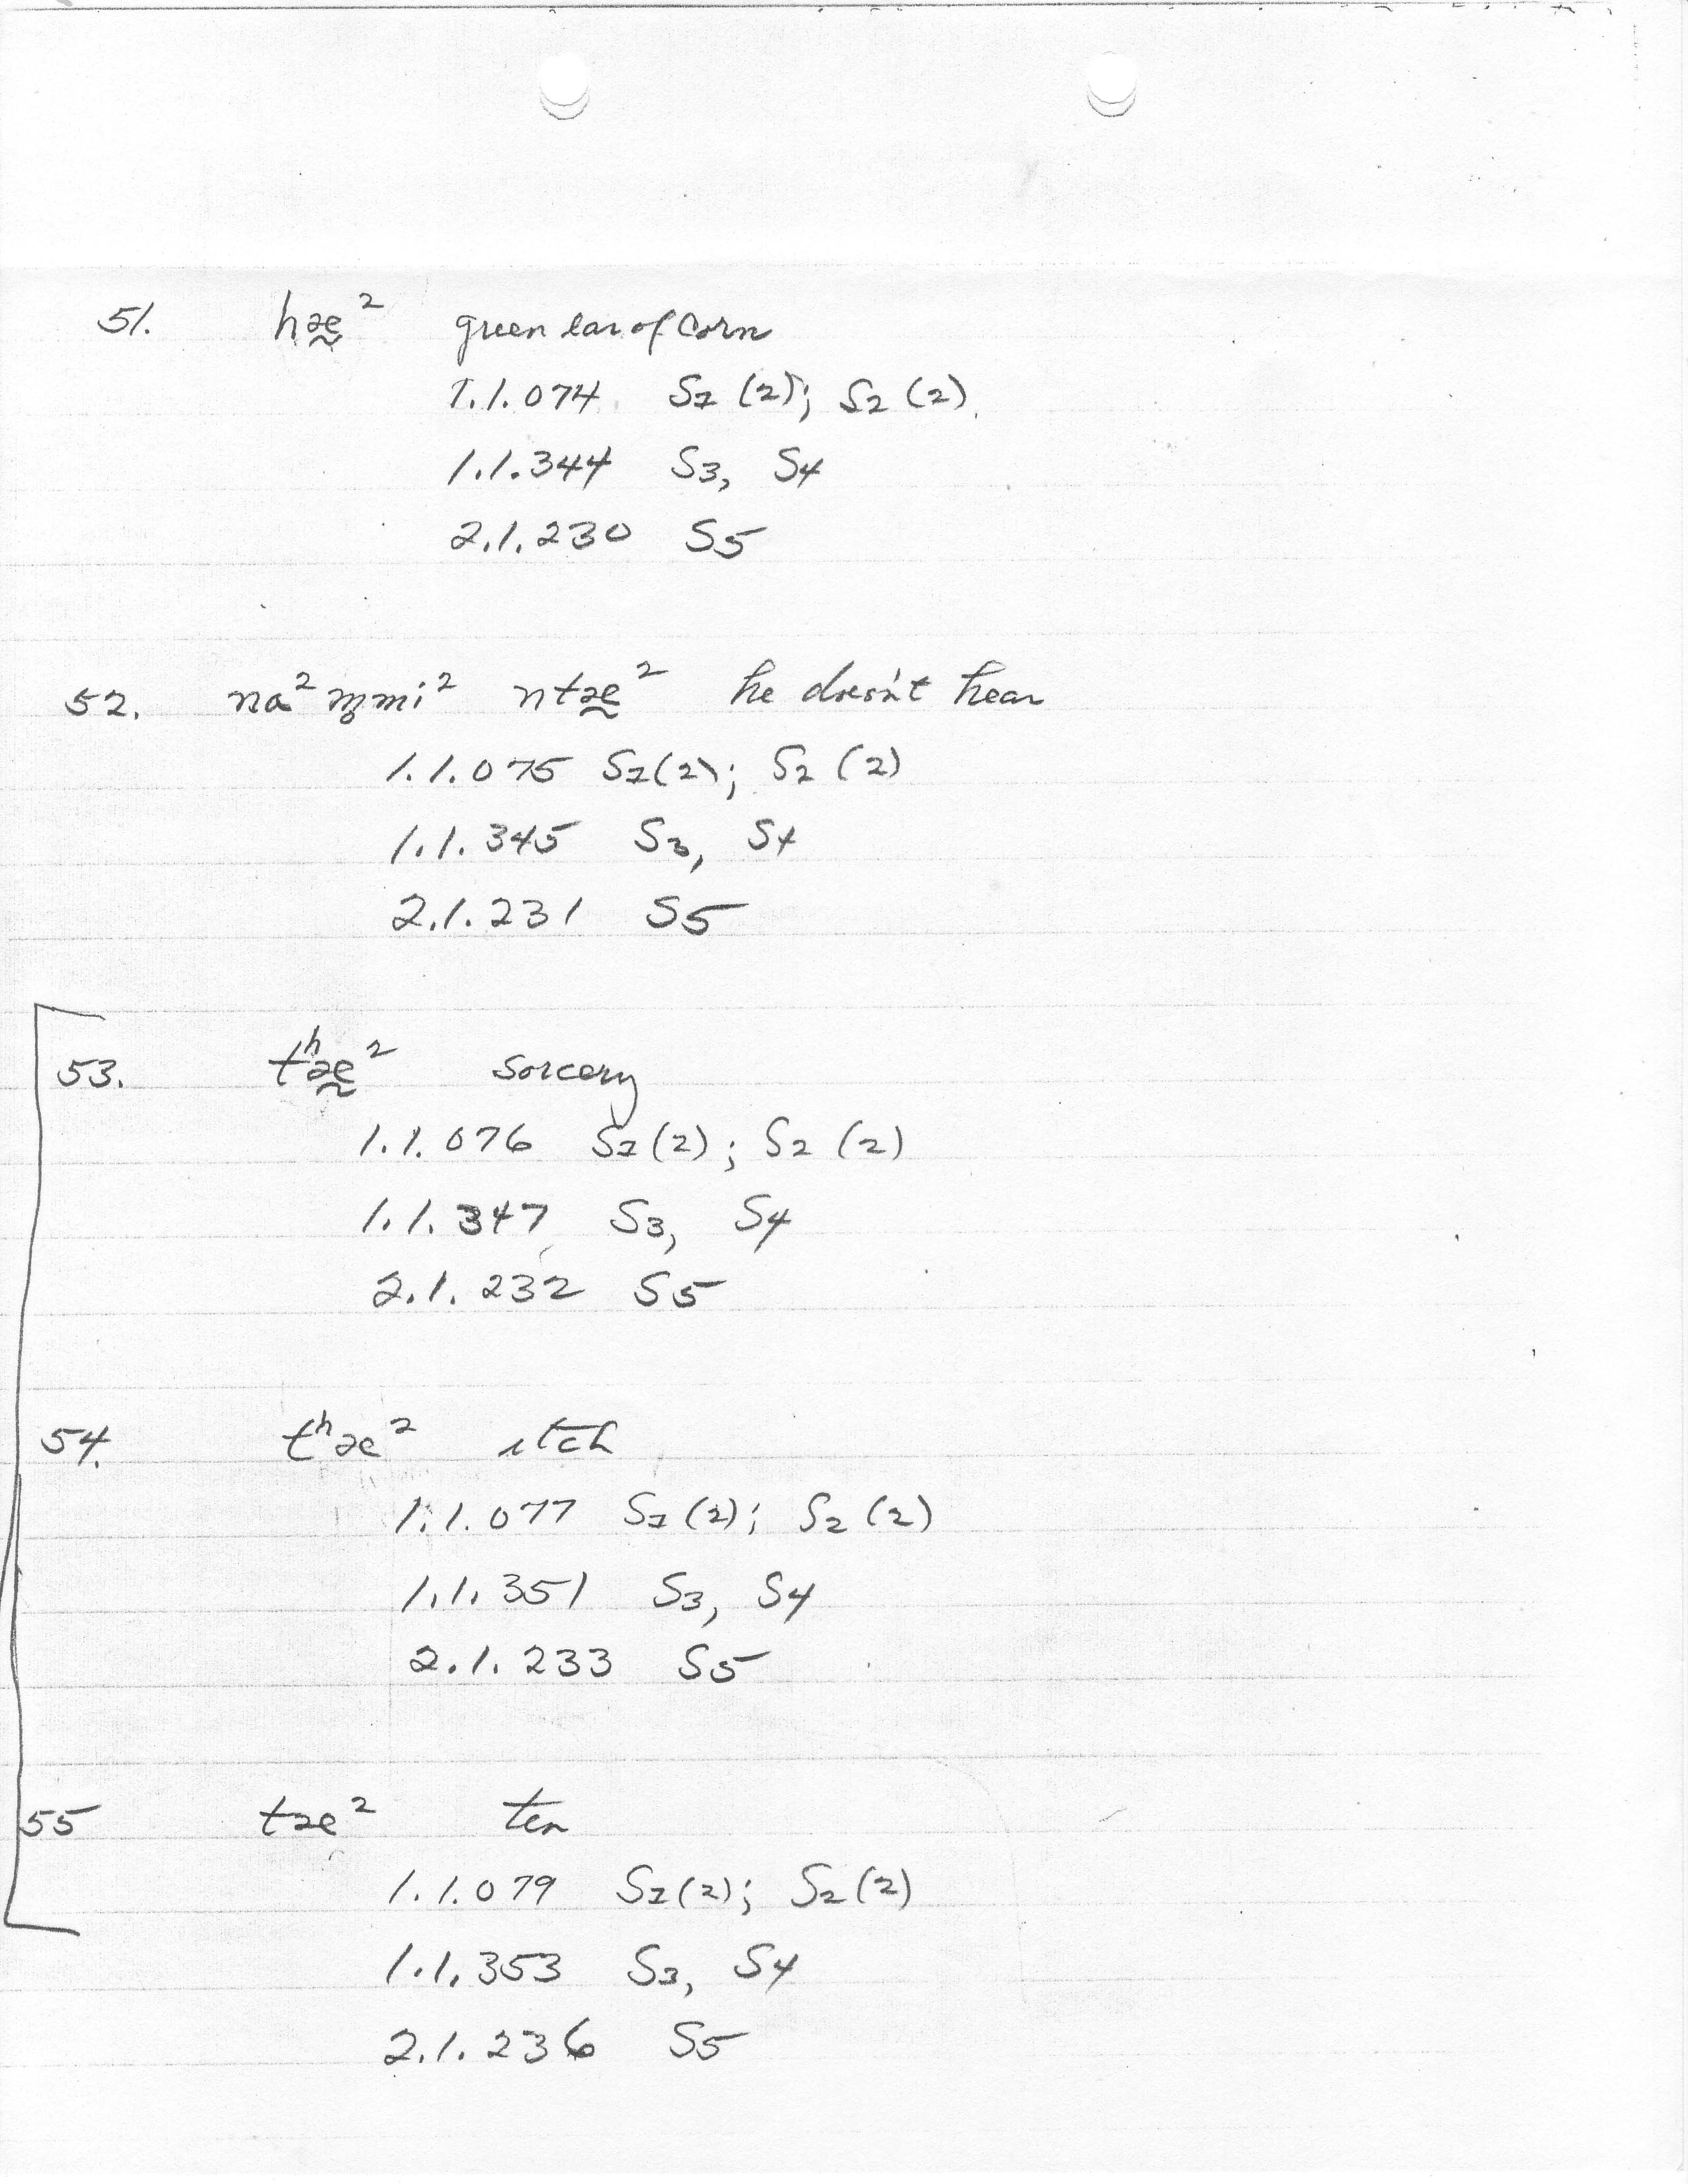 51. hæ̰² green ear of corn
1.1.074 S1 (2); S2 (2)
1.1.344 S3, S4
2.1.230 S5
52. na² m̥mi² ntæ̰² he doesn't hear
1.1.075 S1(2); S2 (2)
1.1.345 S3, S4
2.1.231 S5
53. tʰæ̰² sorcery
1.1.076 S1(2); S2 (2)
1.1.347 S3, S4
2.1.232 S5
54. tʰæ² itch
1.1.077 S1(2); S2 (2)
1.1.351 S3, S4
2.1.233 S5
55 tæ² ten
1.1.079 S1(2); S2(2)
1.1.353 S3, S4
2.1.236 S5